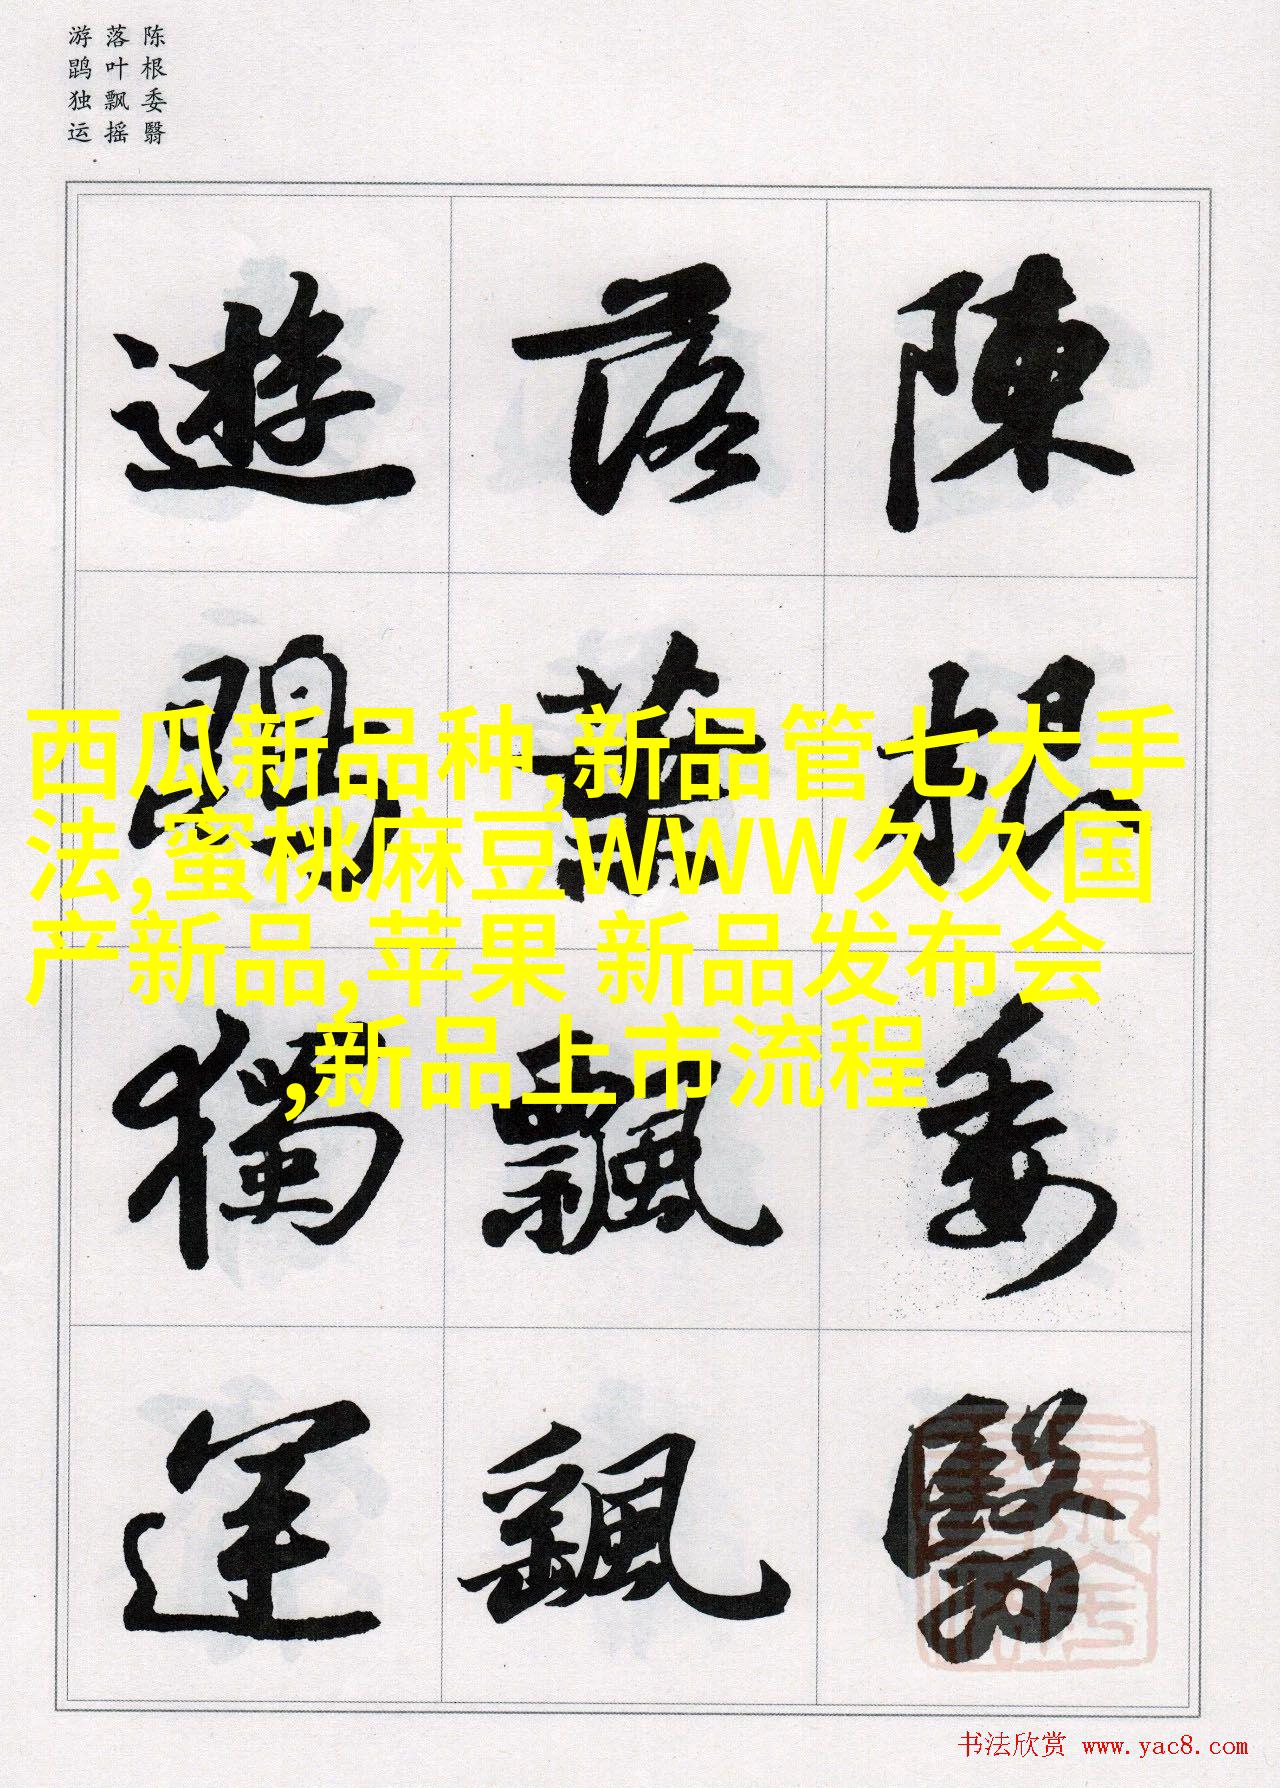 陈根委翳
落叶飘摇
游鹍独运
陳根委翳
落葉飄颻
遊鵾獨運
西瓜新品种,新品管七大手
法,蜜桃麻豆WWW久久国
产新品,苹果 新品发布会
,新品上市流程
书法欣赏 www.yac8.com